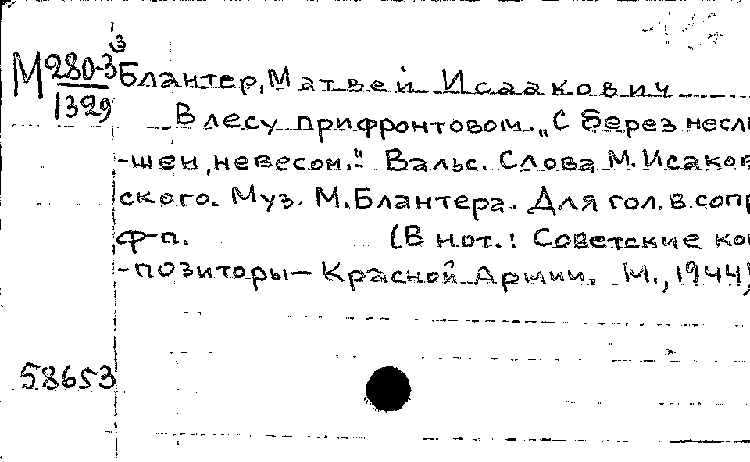 М 280-3 Блантер, Матвей Исаакович
1329
В лесу прифронтовом. „С берез несл
-шен, невесом." Вальс. Слова М. Исаков
ского. Муз. М. Блантера. Для гол. в. сопр
ф-п. (В нот.: Советские ко
-позиторы - Красной Армии. М., 1944)
58653